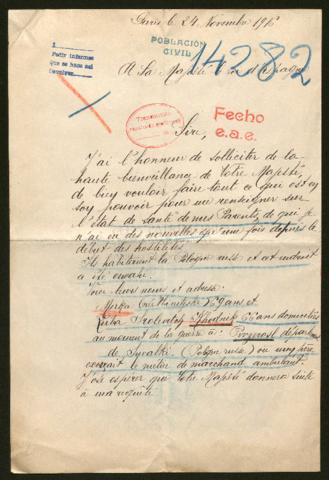 Paris le 24 Novembre 191
1
Pedir informes
que se haga así
POBLACIÓN
CIVIL
14282
A Sa Majesté
Fecho
e.a.e.
Sire,
J'ai l'honneur de solliciter de la
haute bienveillance de Votre Majesté,
de bien vouloir faire tout ce qui est en
son pouvoir pour me renseigner sur
l'état de santé de mes Parents de qui je
n'ai eu des nouvelles qu'une fois depuis le
début des hostilités.
Ils habitaient la Pologne russe et cet endroit
a été
Voici leurs noms et adresse:
79 ans et
domiciliés
au moment de la guerre à:
de Suwalki (Pologne russe) où mon père
exerçait le métier de marchand ambulant.
J'ose espérer que Votre Majesté donnera suite
à ma requête.